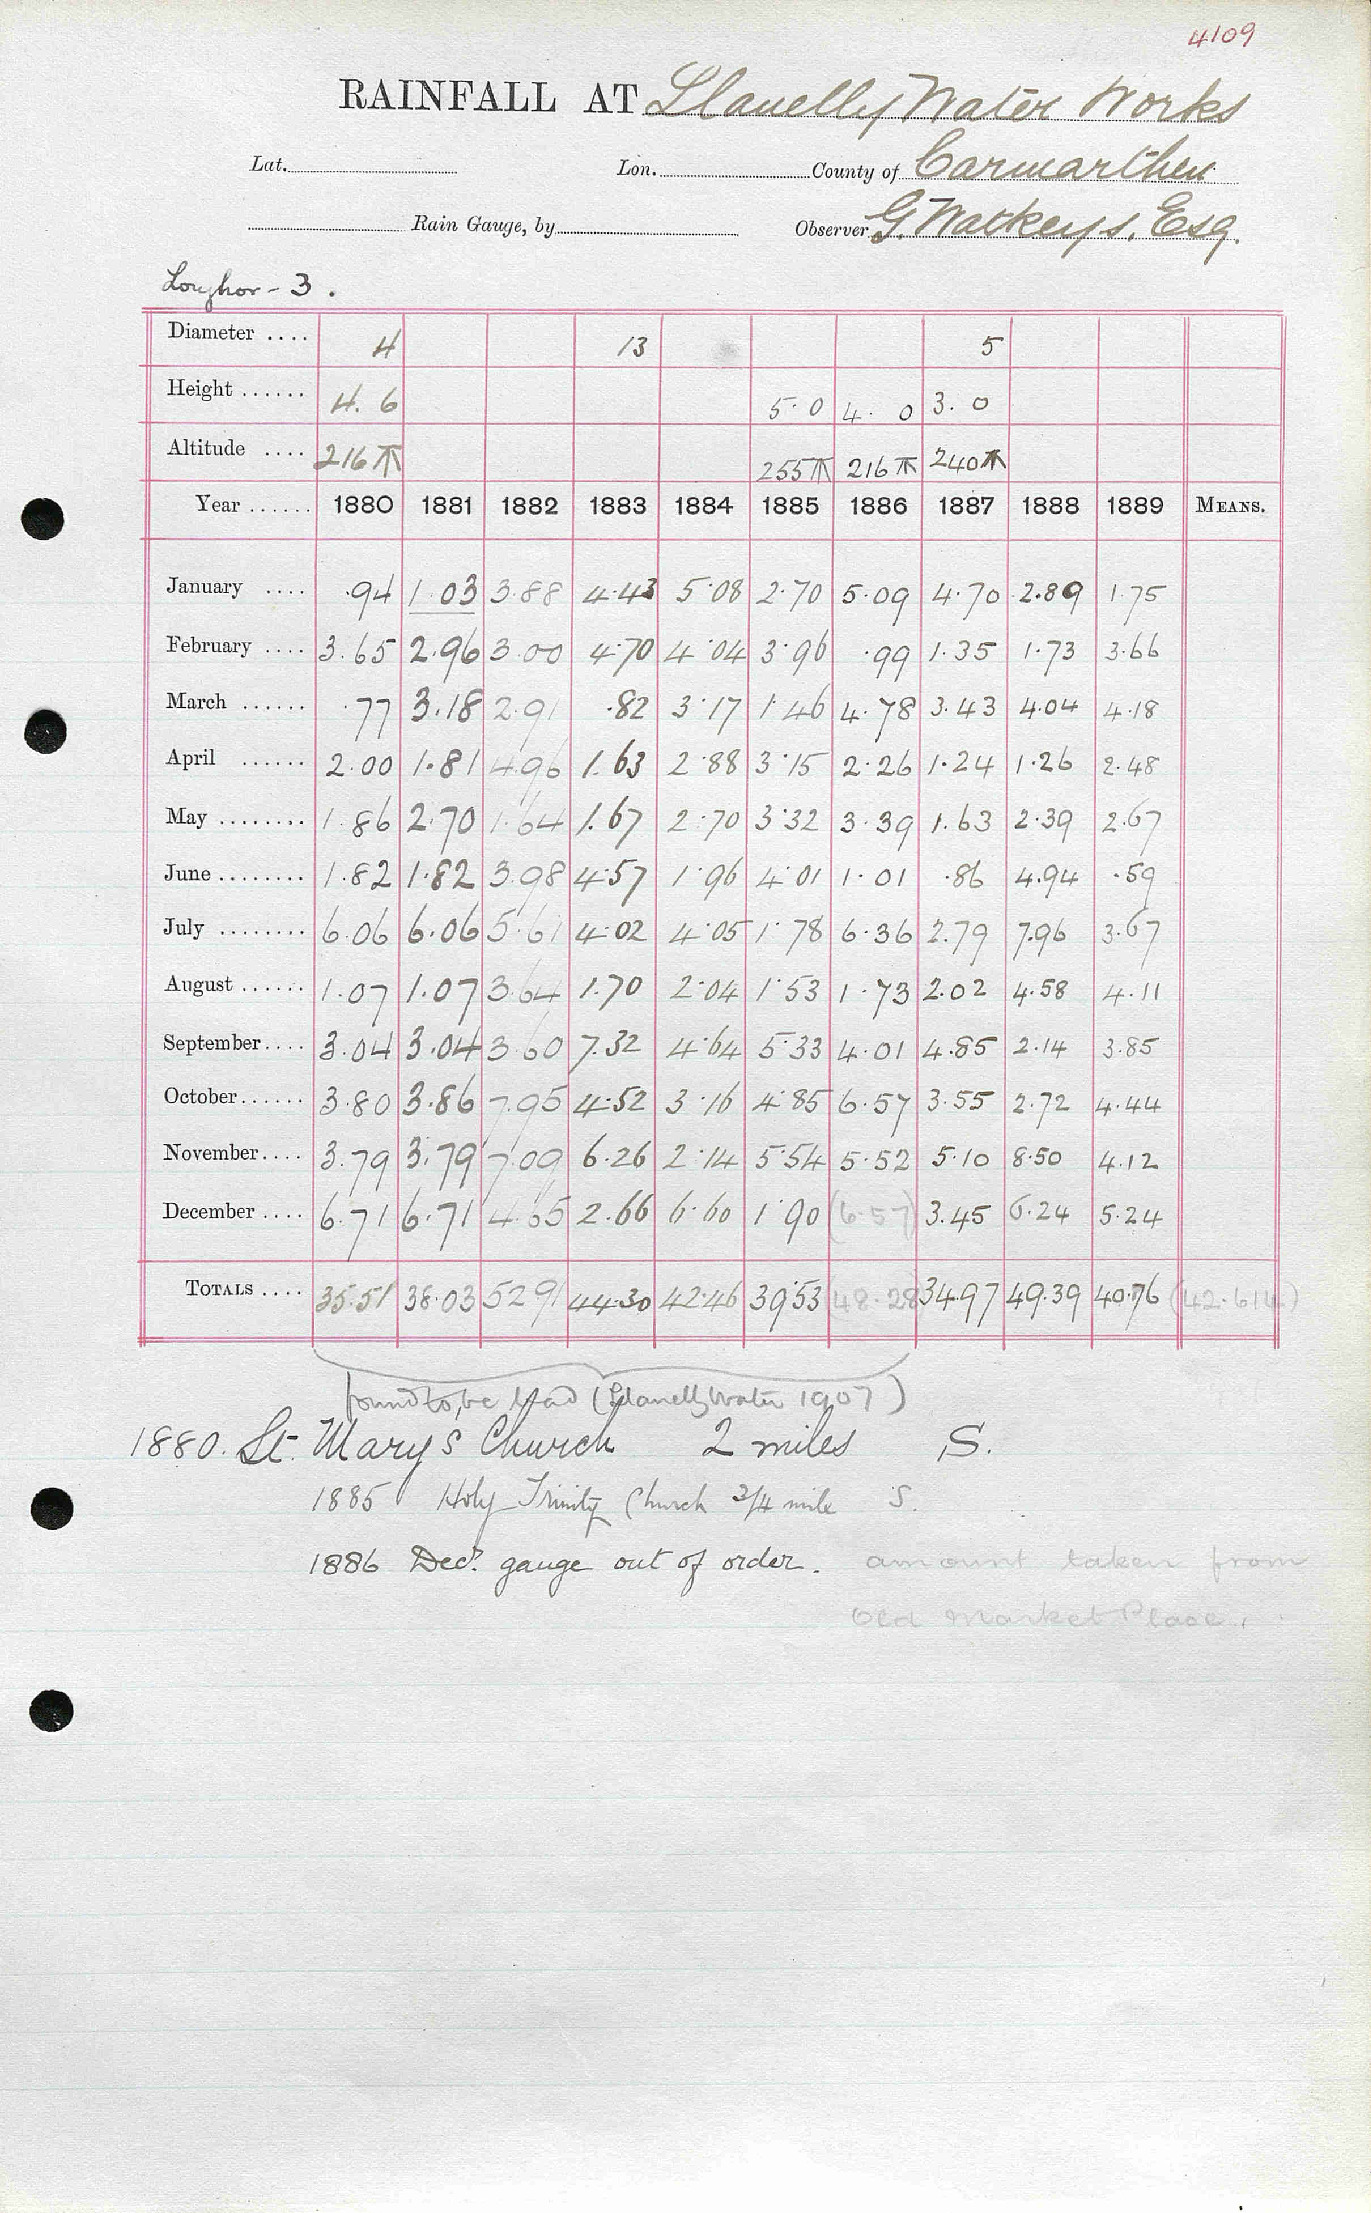 4109
RAINFALL AT Llanelly Water Works
Lat. Lon. County of Carmarthen
Rain Gauge, by Observer G. Watkeys, Esq.
Loughor - 3.
Diameter .... 4 13 5
Height ...... 4. 6 5.0 4. 0 3. 0
Altitude .... 216 255 216 240
Year ...... 1880 1881 1882 1883 1884 1885 1886 1887 1888 1889 MEANS.
January .... .94 1.03 3.88 4.43 5.08 2.70 5.09 4.70 2.89 1.75
February .... 3.65 2.96 3.00 4.70 4.04 3.96 .99 1.35 1.73 3.66
March ...... .77 3.18 2.91 .82 3.17 1.46 4.78 3.43 4.04 4.18
April ...... 2.00 1.81 4.96 1.63 2.88 3.15 2.26 1.24 1.26 2.48
May ........ 1.86 2.70 1.64 1.67 2.70 3.32 3.39 1.63 2.39 2.67
June ........ 1.82 1.82 3.98 4.57 1.96 4.01 1.01 .86 4.94 .59
July ........ 6.06 6.06 5.61 4.02 4.05 1.78 6.36 2.79 7.96 3.67
August ...... 1.07 1.07 3.64 1.70 2.04 1.53 1.73 2.02 4.58 4.11
September.... 3.04 3.04 3.60 7.32 4.64 5.33 4.01 4.85 2.14 3.85
October...... 3.80 3.86 7.95 4.52 3.16 4.85 6.57 3.55 2.72 4.44
November.... 3.79 3.79 7.09 6.26 2.14 5.54 5.52 5.10 8.50 4.12
December .... 6.71 6.71 4.65 2.66 6.60 1.90 (6.57) 3.45 6.24 5.24
TOTALS .... 35.51 38.03 52.91 44.30 42.46 39.53 (48.28) 34.97 49.39 40.76 (42.614)
found to be bad (Llanelly Water 1907)
1880. St. Mary's Church 2 miles S.
1885 Holy Trinity Church 3/4 mile S.
1886 Decr. gauge out of order. amount taken from
Old Market Place.